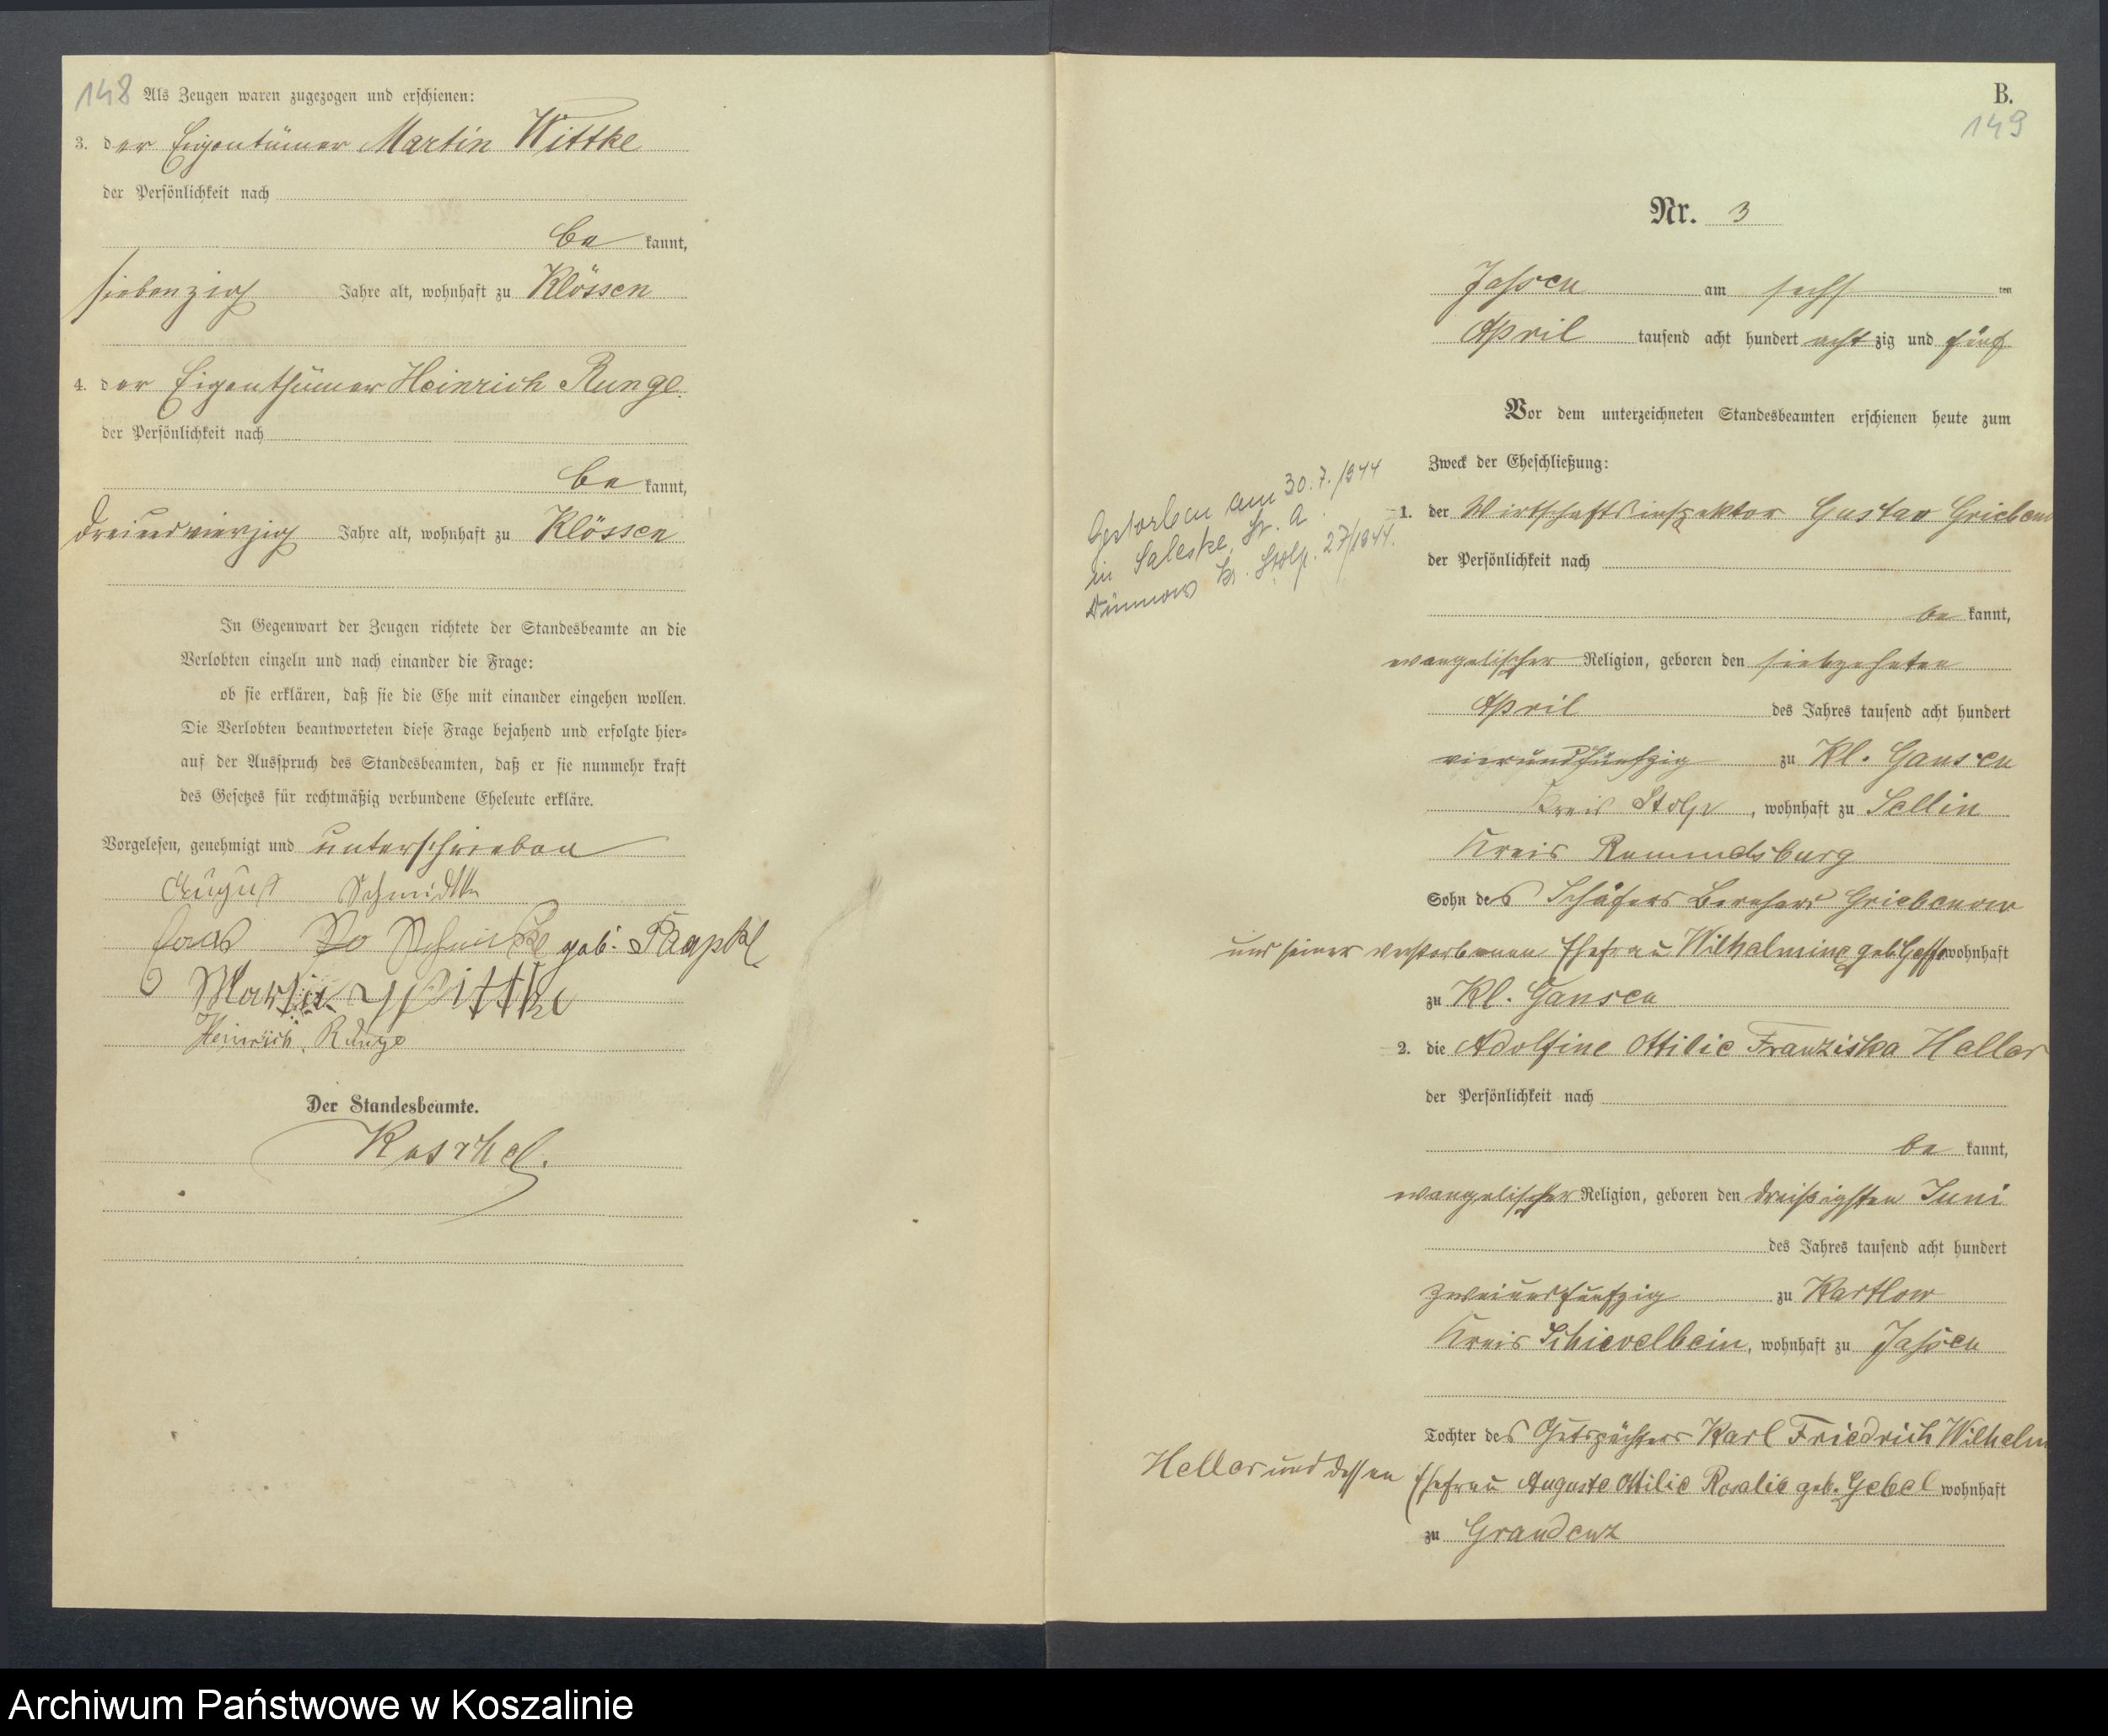 148 Als Zeugen waren zugezogen und erschienen:
3. der Eigentümer Martin Wittke
der Persönlichkeit nach
be kannt,
siebenzig Jahre alt, wohnhaft zu Klössen
4. der Eigenthümer Heinrich Runge.
der Persönlichkeit nach
be kannt,
dreiundvierzig Jahre alt, wohnhaft zu Klössen
In Gegenwart der Zeugen richtete der Standesbeamte an die
Verlobten einzeln und nach einander die Frage:
ob sie erklären, daß sie die Ehe mit einander eingehen wollen.
Die Verlobten beantworteten diese Frage bejahend und erfolgte hier-
auf der Ausspruch des Standesbeamten, daß er sie nunmehr kraft
des Gesetzes für rechtmäßig verbundene Eheleute erkläre.
Vorgelesen, genehmigt und unterschrieben
August Schmidtke
geb. Paapke
Martin Wittke
Heinrich Runge
Der Standesbeamte.
B.
149
Nr. 3
Jassen am sechs ten
April tausend acht hundert acht zig und fünf
Vor dem unterzeichneten Standesbeamten erschienen heute zum
Zweck der Eheschließung:
1. der Wirtschaftsinspektor Gustav Griebenow
der Persönlichkeit nach
be kannt,
evangelischer Religion, geboren den siebzehnten
April des Jahres tausend acht hundert
vierundfünfzig zu Kl. Gansen
Kreis Stolp, wohnhaft zu Sellin
Kreis Rummelsburg
Sohn des Schäfers Griebenow
und seiner verstorbenen Ehefrau Wilhelmine geb. wohnhaft
zu Kl. Gansen
2. die Adolfine Ottilie Franziska Heller
der Persönlichkeit nach
be kannt,
evangelischer Religion, geboren den dreißigsten Juni
des Jahres tausend acht hundert
zweiundfünfzig zu Kartlow
Kreis Schievelbein, wohnhaft zu Jassen
Tochter des Gutspächters Karl Friedrich Wilhelm
Heller und dessen Ehefrau Auguste Ottilie Rosalie geb. Gebel wohnhaft
zu Graudenz
Gestorben am 30.7.1944
in Saleske, St. A.
Dünnow Kr. Stolp. 27/1944.
Archiwum Państwowe w Koszalinie